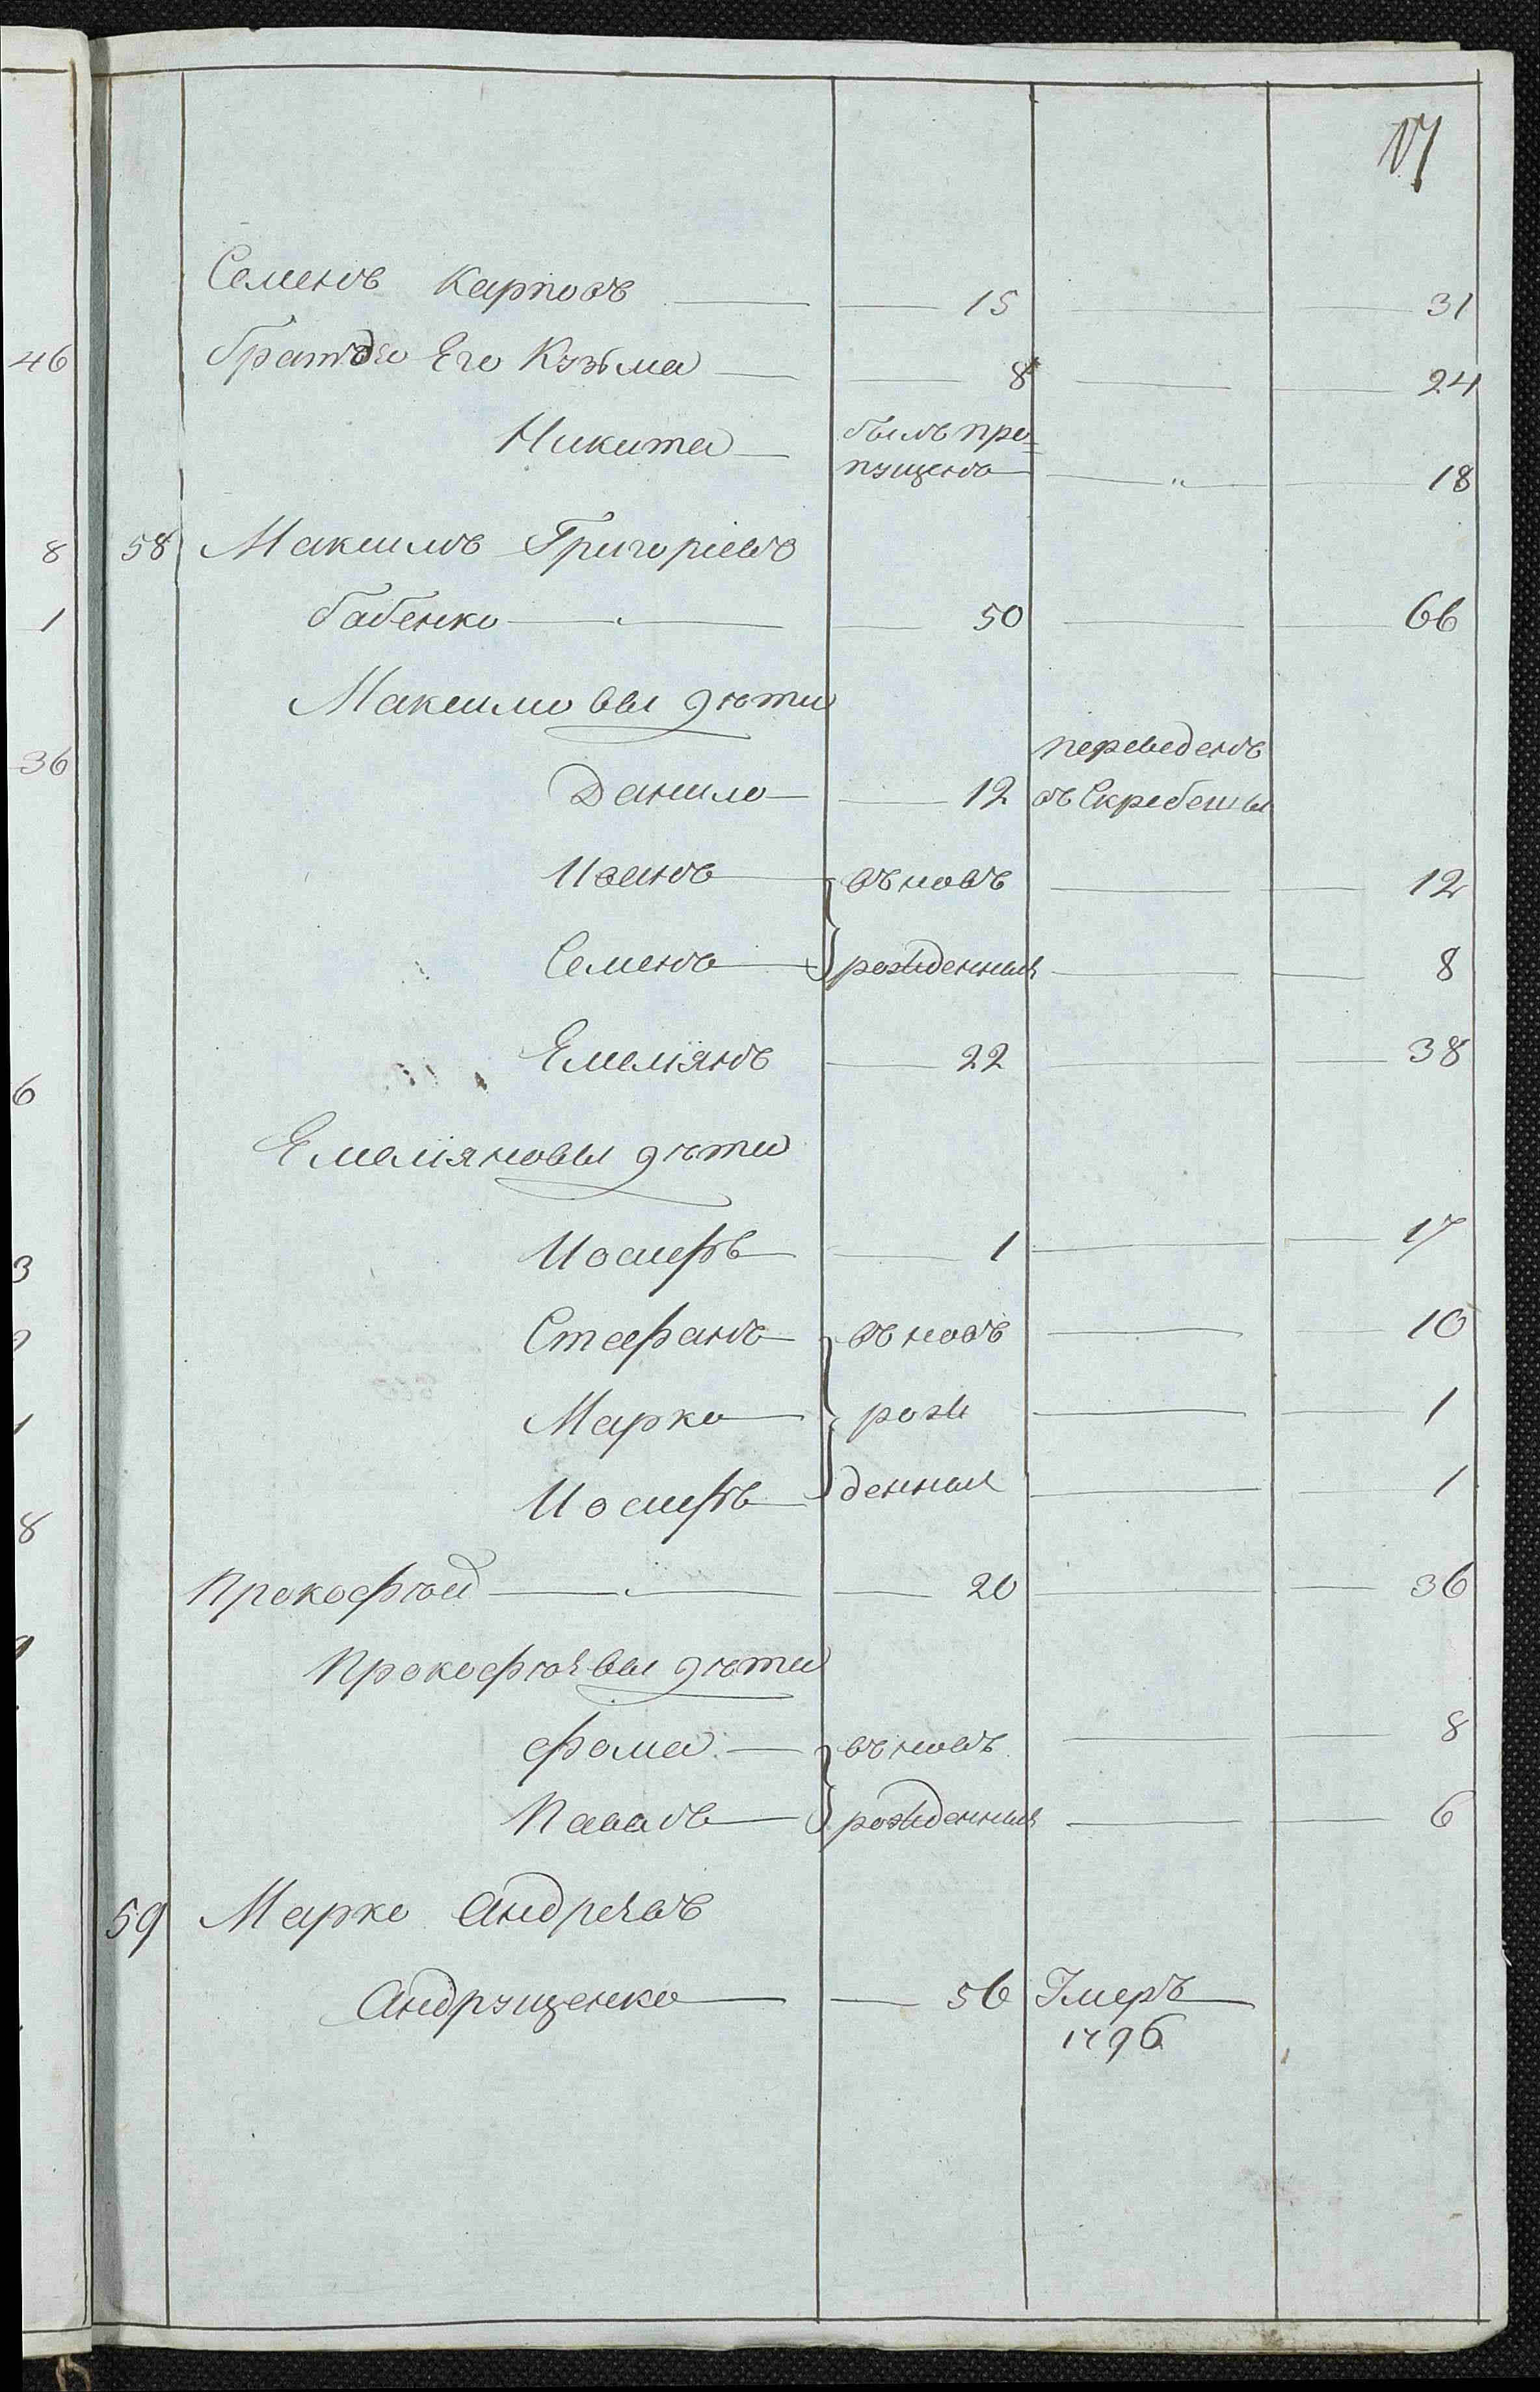 17
Семенъ Карповъ 15 31
46
братья Его Кузьма 8 24
Никита былъ про=
пущенъ " 18
8
58 Максимъ Григоріевъ
1
бабенко 50 66
Максимовы дѣти
36
переведенъ
Данило 12 въ Скребеши
Иванъ въновъ 12
Семенъ рожденныя 8
Емеліянъ 22 38
6
Емеліяновы дѣти
3
Иосифъ 1 17
Стефанъ въновъ 10
1
Марко рож 1
Иосифъ денныя 1
8
Прокофѣй 20 36
Прокофѣевы дѣти
Фома въновъ 8
Павелъ рожденныя 6
59 Марко Андреевъ
Андрущенко 56 Умеръ
1796